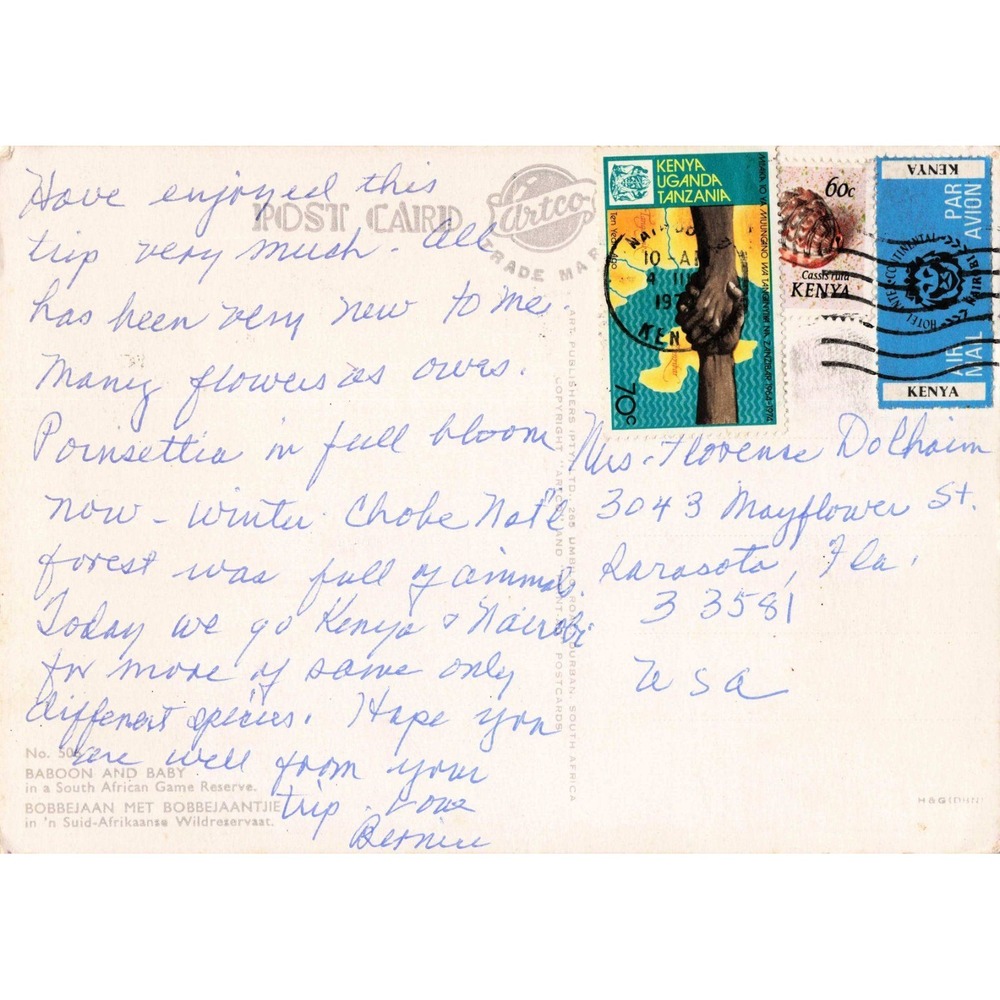 Have enjoyed this
trip very much - All
has been very new to me.
Many flowers as ours.
Poinsettia in full bloom
now - winter. Chobe Nat'l
forest was full of animals.
Today we go Kenya & Nairobi
for more of same only
different species. Hope you
are well from your
trip. Love
Bernice
POST CARD
artco
TRADE MAR
No. 50
BABOON AND BABY
in a South African Game Reserve.
BOBBEJAAN MET BOBBEJAANTJIE
in 'n Suid-Afrikaanse Wildreservaat.
ART PUBLISHERS (PTY.) LTD. 265 UMB DURBAN, SOUTH AFRICA
COPYRIGHT "ARTCO" POSTCARDS
KENYA
UGANDA
TANZANIA
Ten Years Ago
MIAKA 10 YA MUUNGANO WA TANGANYIKA NA ZANZIBAR 1964-1974
Zanzibar
70c
NAIROBI
10 - AM
4 III
197
KEN
60c
Cassis rufa
KENYA
KENYA
PAR AVION
HOTEL INTER-CONTINENTAL NAIROBI
AIR MAIL
KENYA
Mrs. Florense Dolhaim
3043 Mayflower St.
Sarasota, Fla.
33581
USA